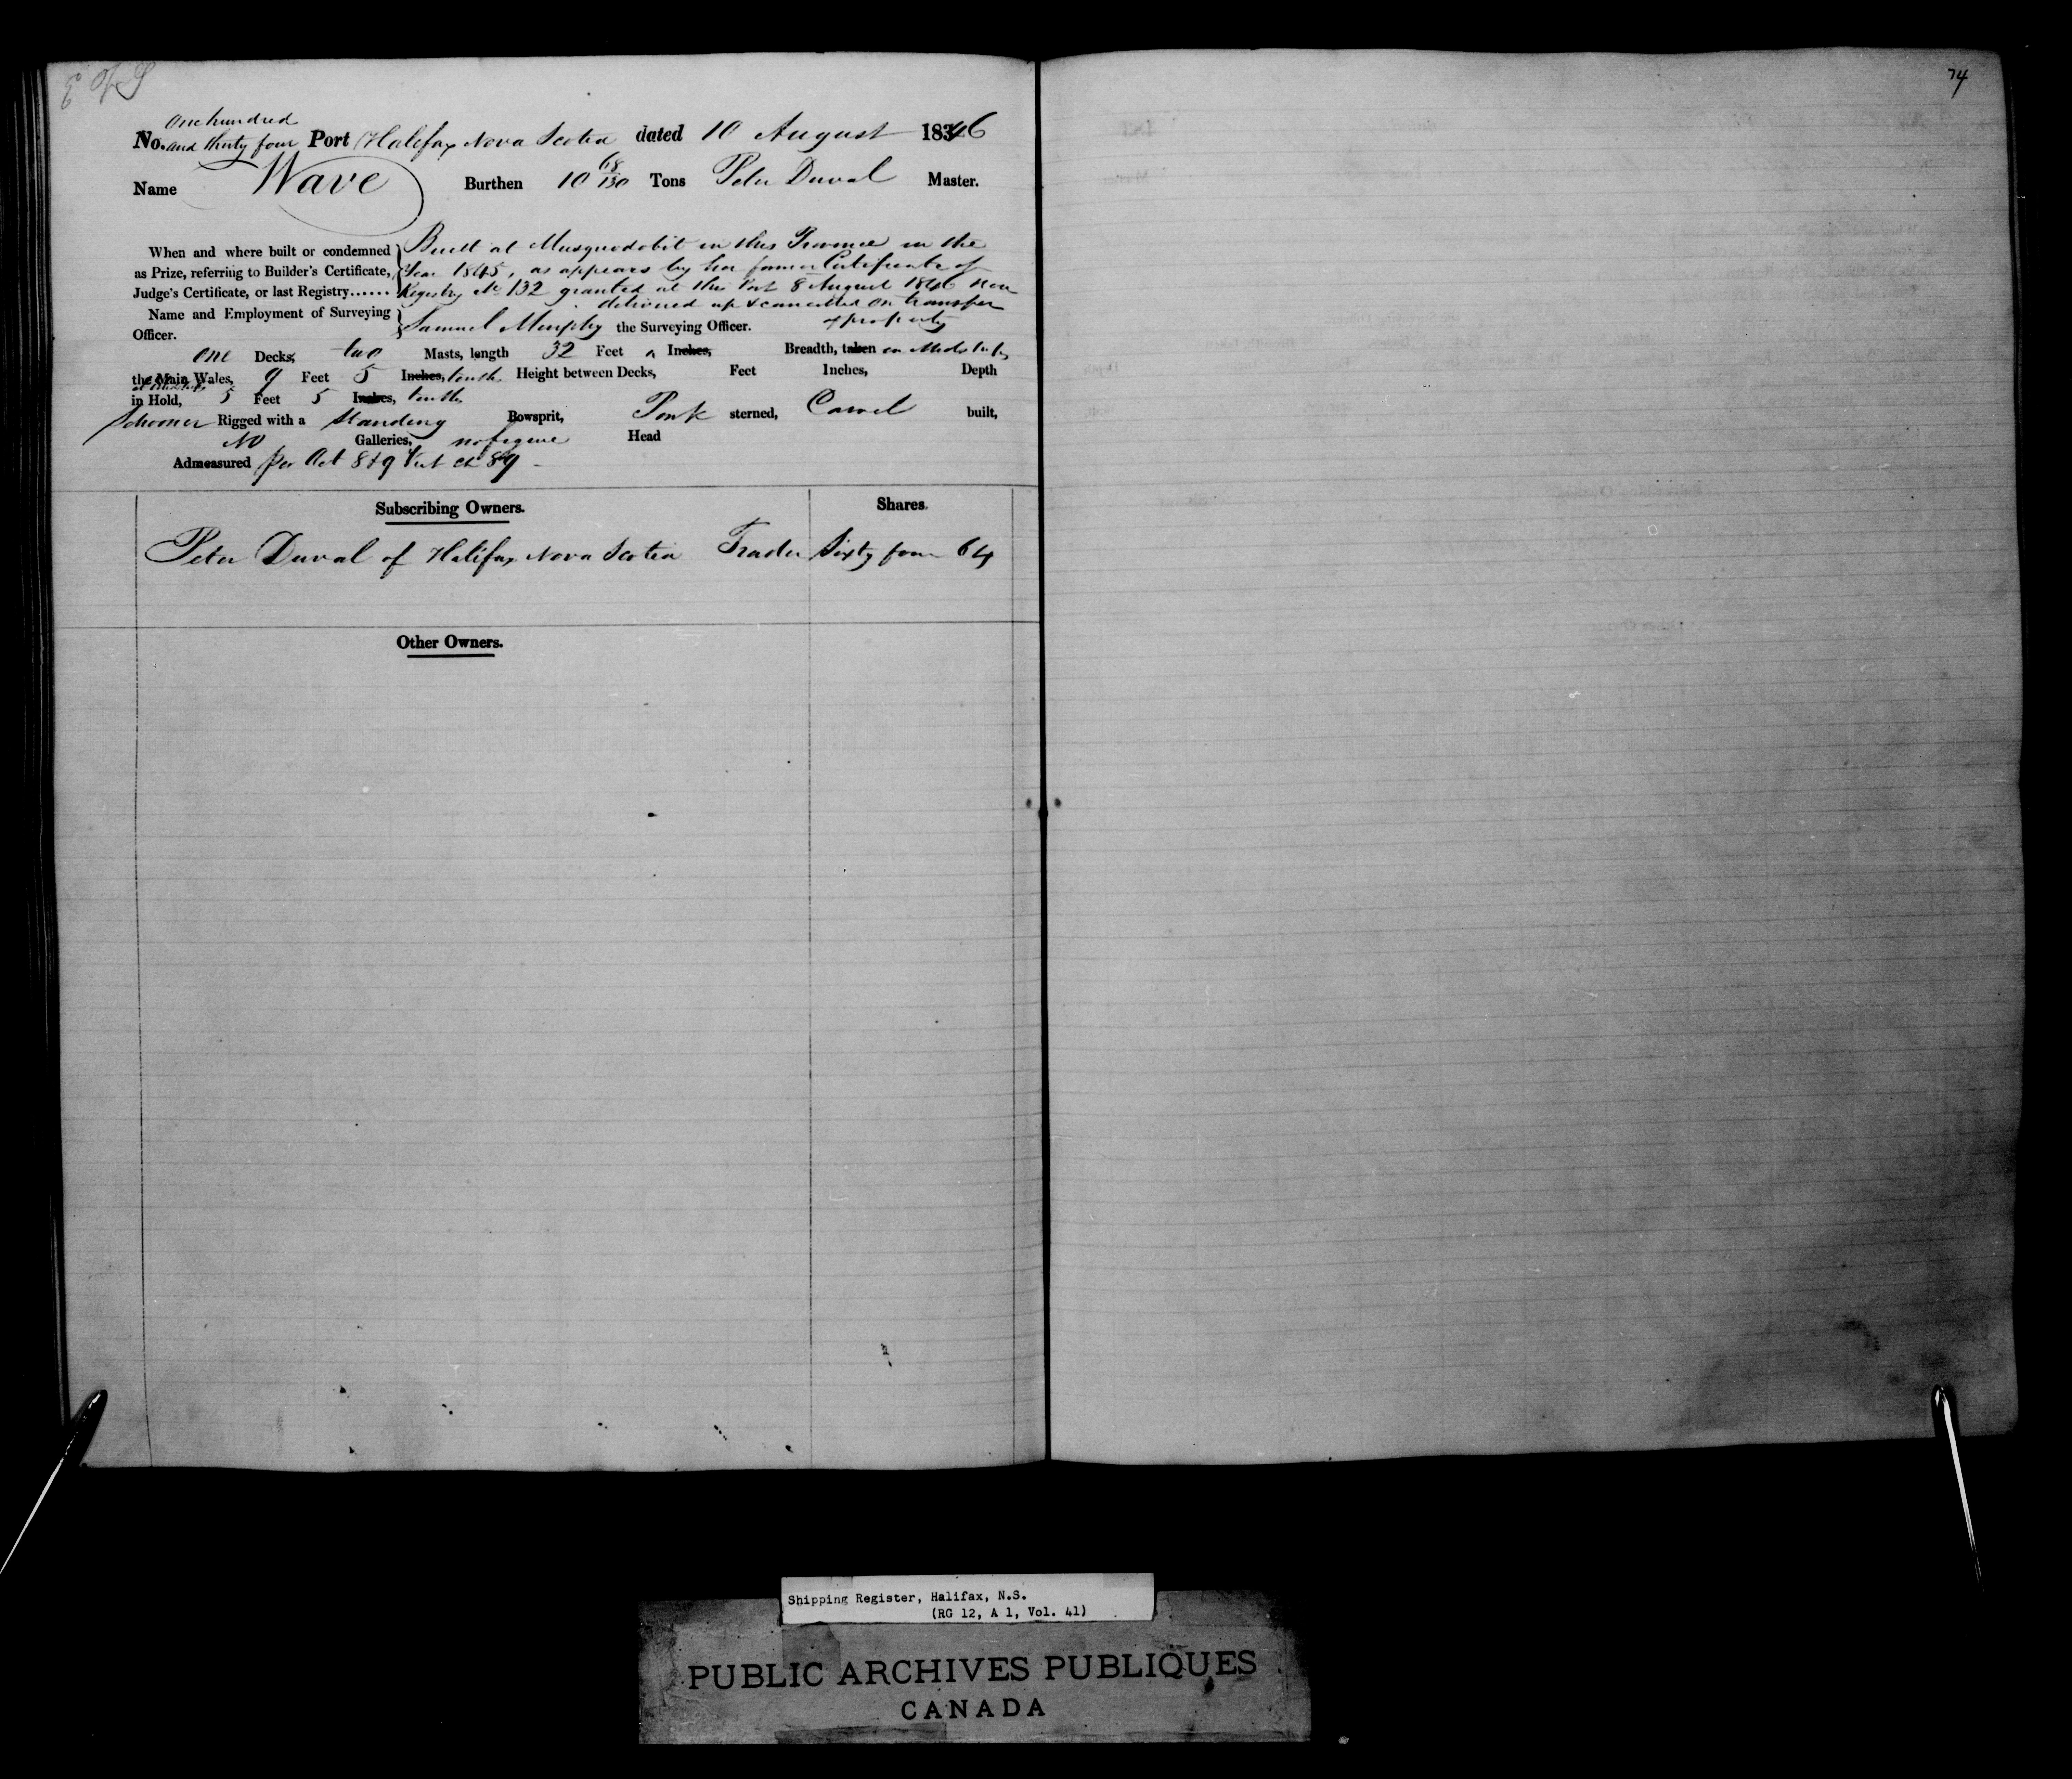 74
one hundred
No. and thirty four Port Halifax Nova Scotia dated 10 August 1846
Name Wave Burthen 10 68/130 Tons Peter Duval Master.
When and where built or condemned as Prize, referring to Builder's Certificate, Judge's Certificate, or last Registry......
Built at Musquodobit in this Province in the
Year 1845, as appears by her former Certificate of
Registry No 132 granted at this Port 8 August 1846 now
delivered up & cancelled on transfer
of property
Name and Employment of Surveying Officer.
Samuel Murphy the Surveying Officer.
one Decks, two Masts, length 32 Feet Inches, Breadth, taken in Midships
the Main Wales, 9 Feet 5 Inches, tenths Height between Decks, Feet Inches, Depth
at Midships
in Hold, 5 Feet 5 Inches, tenths
Schooner Rigged with a Standing Bowsprit, Pink sterned, Carvel built,
No Galleries, no figure Head
Admeasured per Act 8 & 9 Vict ch 89
Subscribing Owners. Shares.
Peter Duval of Halifax Nova Scotia Trader Sixty four 64
Other Owners.
Shipping Register, Halifax, N.S.
(RG 12, A 1, Vol. 41)
PUBLIC ARCHIVES PUBLIQUES
CANADA